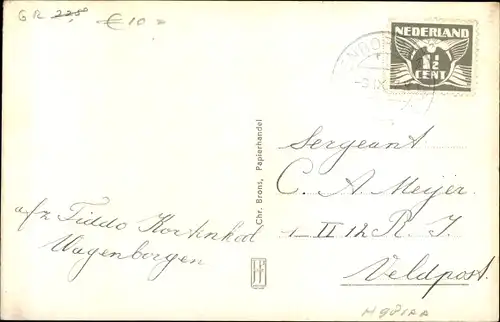 GR 2250
€10=
NEDERLAND
1½
CENT
Chr. Brons, Papierhandel
Sergeant
C. A. Meijer
1-II 12 R. I.
Veldpost.
a/z Fiddo Kortenhoel
Wagenborgen